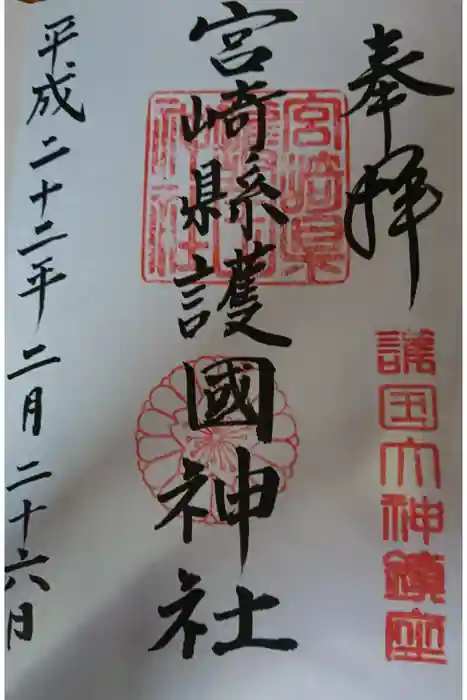 奉拝
護国大神鎮座
宮崎縣護國神社
宮崎県護国神社
平成二十二年二月二十六日